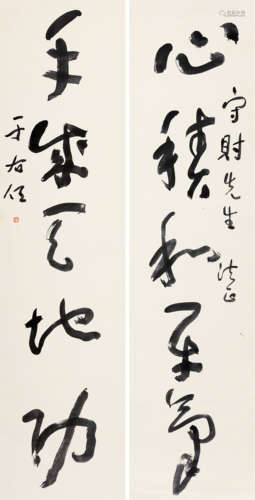 守財先生 法正
心積和平氣
手成天地功
于右任